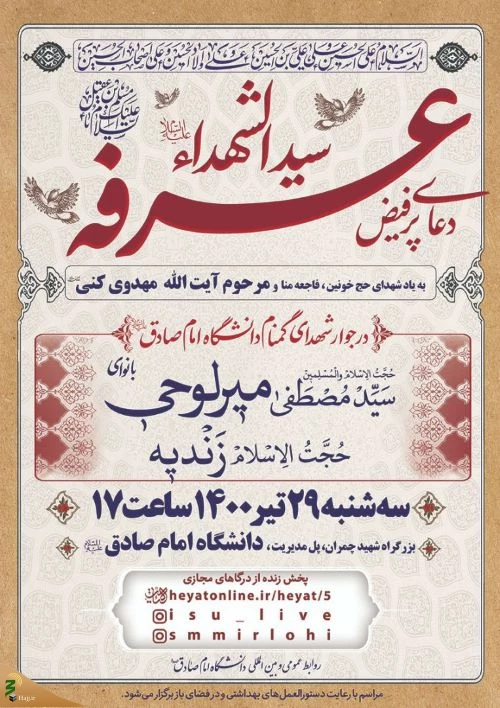 السلام علی الحسین و علی علی بن الحسین و علی اولاد الحسین و علی اصحاب الحسین
السلام علیک یا مسلم بن عقیل
دعای پرفیض
عرفه
سیدالشهداء علیه السلام
به یاد شهدای حج خونین، فاجعه منا و مرحوم آیت الله مهدوی کنی
در جوار شهدای گمنام دانشگاه امام صادق
بانوای
حُجَّتُ الاِسلام وَالمُسلِمین
سَیِّد مُصطَفیٰ میرلوحی
حُجَّتُ الاِسلام زَندیه
سه‌شنبه ۲۹ تیر ۱۴۰۰ ساعت ۱۷
بزرگراه شهید چمران، پل مدیریت، دانشگاه امام صادق علیه السلام
پخش زنده از درگاهای مجازی
heyatonline.ir/heyat/5
isu_live
smmirlohi
روابط عمومی و بین المللی دانشگاه امام صادق
مراسم با رعایت دستورالعمل‌های بهداشتی و در فضای باز برگزار می‌شود.
Hajj.ir